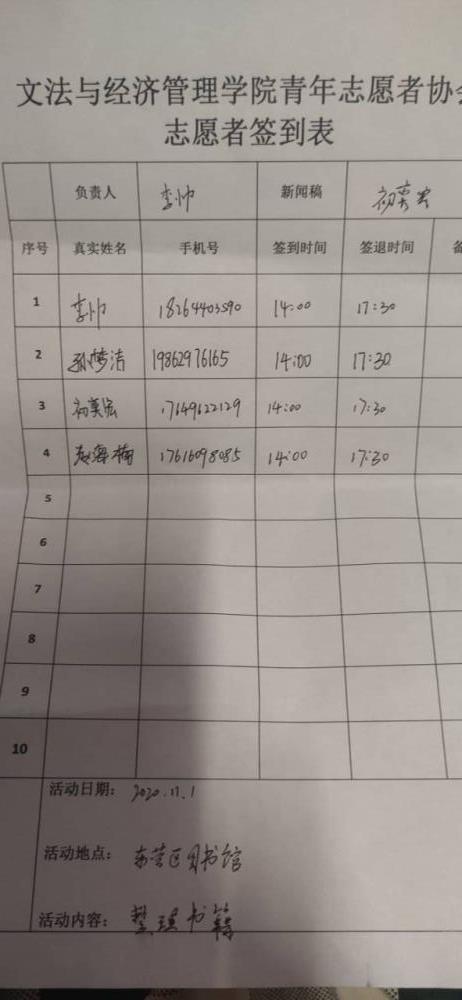 文法与经济管理学院青年志愿者协会
志愿者签到表
负责人 李帅 新闻稿 初美岩
序号 真实姓名 手机号 签到时间 签退时间 备
1 李帅 18264403590 14:00 17:30
2 孙梦洁 19862976165 14:00 17:30
3 初美岩 17649622129 14:00 17:30
4 楠 17616098085 14:00 17:30
5
6
7
8
9
10
活动日期: 2020.11.1
活动地点: 东营区图书馆
活动内容: 整理书籍